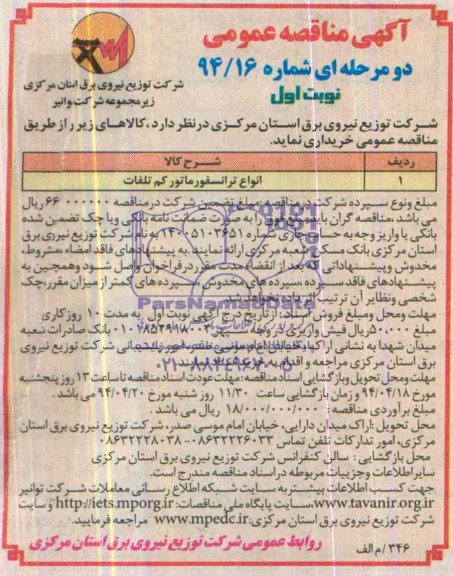 آگهی مناقصه عمومی
دو مرحله ای شماره ۹۴/۱۶
نوبت اول
شرکت توزیع نیروی برق استان مرکزی
زیرمجموعه شرکت توانیر
شرکت توزیع نیروی برق استان مرکزی در نظر دارد، کالاهای زیر را از طریق
مناقصه عمومی خریداری نماید.
ردیف شرح کالا
۱ انواع ترانسفورماتور کم تلفات
مبلغ و نوع سپرده شرکت در مناقصه: مبلغ تضمین شرکت در مناقصه ۶۶۰۰۰۰۰۰۰ ریال
می باشد، مناقصه گران باید مبلغ فوق را به صورت ضمانت نامه بانکی و یا چک تضمین شده
بانکی یا واریز وجه به حساب جاری شماره ۱۴۰۰۵۱۰۳۶۵۱ به نام شرکت توزیع نیروی برق
استان مرکزی بانک مسکن شعبه مرکزی ارائه نمایند. به پیشنهادهای فاقد امضاء، مشروط،
مخدوش و پیشنهاداتی که بعد از انقضاء مدت مقرر در فراخوان واصل شود و همچنین به
پیشنهادهای فاقد سپرده، سپرده های مخدوش، سپرده های کمتر از میزان مقرر، چک
شخصی و نظایر آن ترتیب اثر داده نخواهد شد.
مهلت و محل و مبلغ فروش اسناد: از تاریخ درج آگهی نوبت اول به مدت ۱۰ روز کاری
مبلغ ۵۰۰۰۰۰ ریال فیش واریزی در وجه سیبا بانک صادرات شعبه
میدان شهدا به نشانی اراک، خیابان امام موسی صدر، امور پشتیبانی شرکت توزیع نیروی
برق استان مرکزی مراجعه و اقدام به خرید اسناد نمایند.
مهلت و محل تحویل و بازگشایی اسناد مناقصه: مهلت عودت اسناد مناقصه تا ساعت ۱۳ روز پنجشنبه
مورخ ۹۴/۰۴/۱۸ و زمان بازگشایی ساعت ۱۱/۳۰ روز شنبه مورخ ۹۴/۰۴/۲۰ می باشد.
مبلغ برآوردی مناقصه: ۱۸/۰۰۰/۰۰۰/۰۰۰ ریال می باشد.
محل تحویل: اراک میدان دارایی، خیابان امام موسی صدر، شرکت توزیع نیروی برق استان
مرکزی، امور تدارکات تلفن تماس ۰۸۶۳۲۲۲۶۰۳۳-۰۸۶۳۲۲۲۸۰۳۸
محل بازگشایی: سالن کنفرانس شرکت توزیع نیروی برق استان مرکزی
سایر اطلاعات و جزییات مربوطه در اسناد مناقصه مندرج است.
جهت کسب اطلاعات بیشتر به سایت شبکه اطلاع رسانی معاملات شرکت توانیر
www.tavanir.org.ir سایت پایگاه ملی مناقصات: http://iets.mporg.ir و سایت
شرکت توزیع نیروی برق استان مرکزی: www.mpedc.ir مراجعه فرمایید.
روابط عمومی شرکت توزیع نیروی برق استان مرکزی
۳۴۶/م الف
ParsNamadData
۰۲۱-۸۸۳۴۹۶۷۰-۵